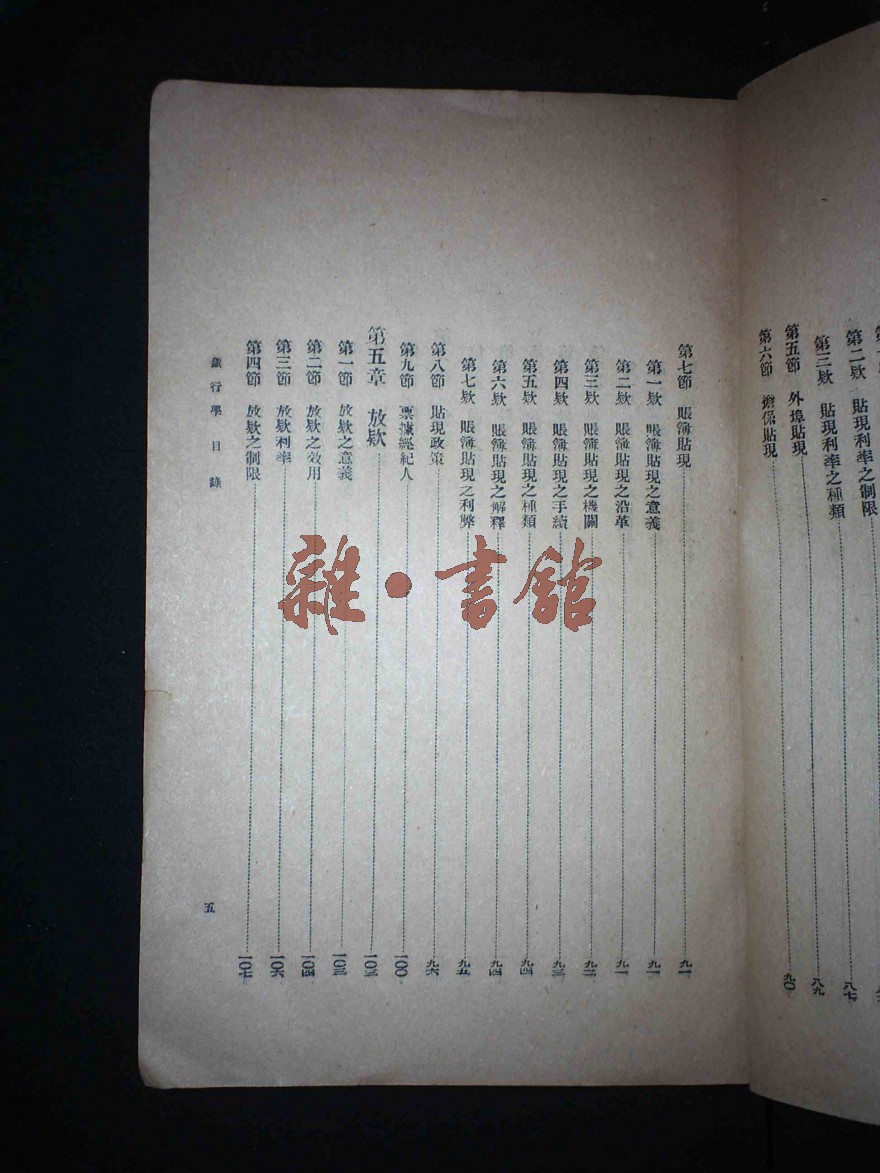 第二欵 貼現利率之制限 八七
第三欵 貼現利率之種類 八九
第五節 外埠貼現
第六節 擔保貼現 九〇
第七節 賬簿貼現 九一
第一欵 賬簿貼現之意義 九一
第二欵 賬簿貼現之沿革 九一
第三欵 賬簿貼現之機關 九二
第四欵 賬簿貼現之手續 九三
第五欵 賬簿貼現之種類 九四
第六欵 賬簿貼現之解釋 九四
第七欵 賬簿貼現之利弊 九五
第八節 貼現政策 九六
第九節 票據經紀人 一〇〇
第五章 放欵 一〇三
第一節 放欵之意義 一〇三
第二節 放欵之效用 一〇四
第三節 放欵利率 一〇六
第四節 放欵之制限 一〇七
銀行學 目錄 五
雜·書館